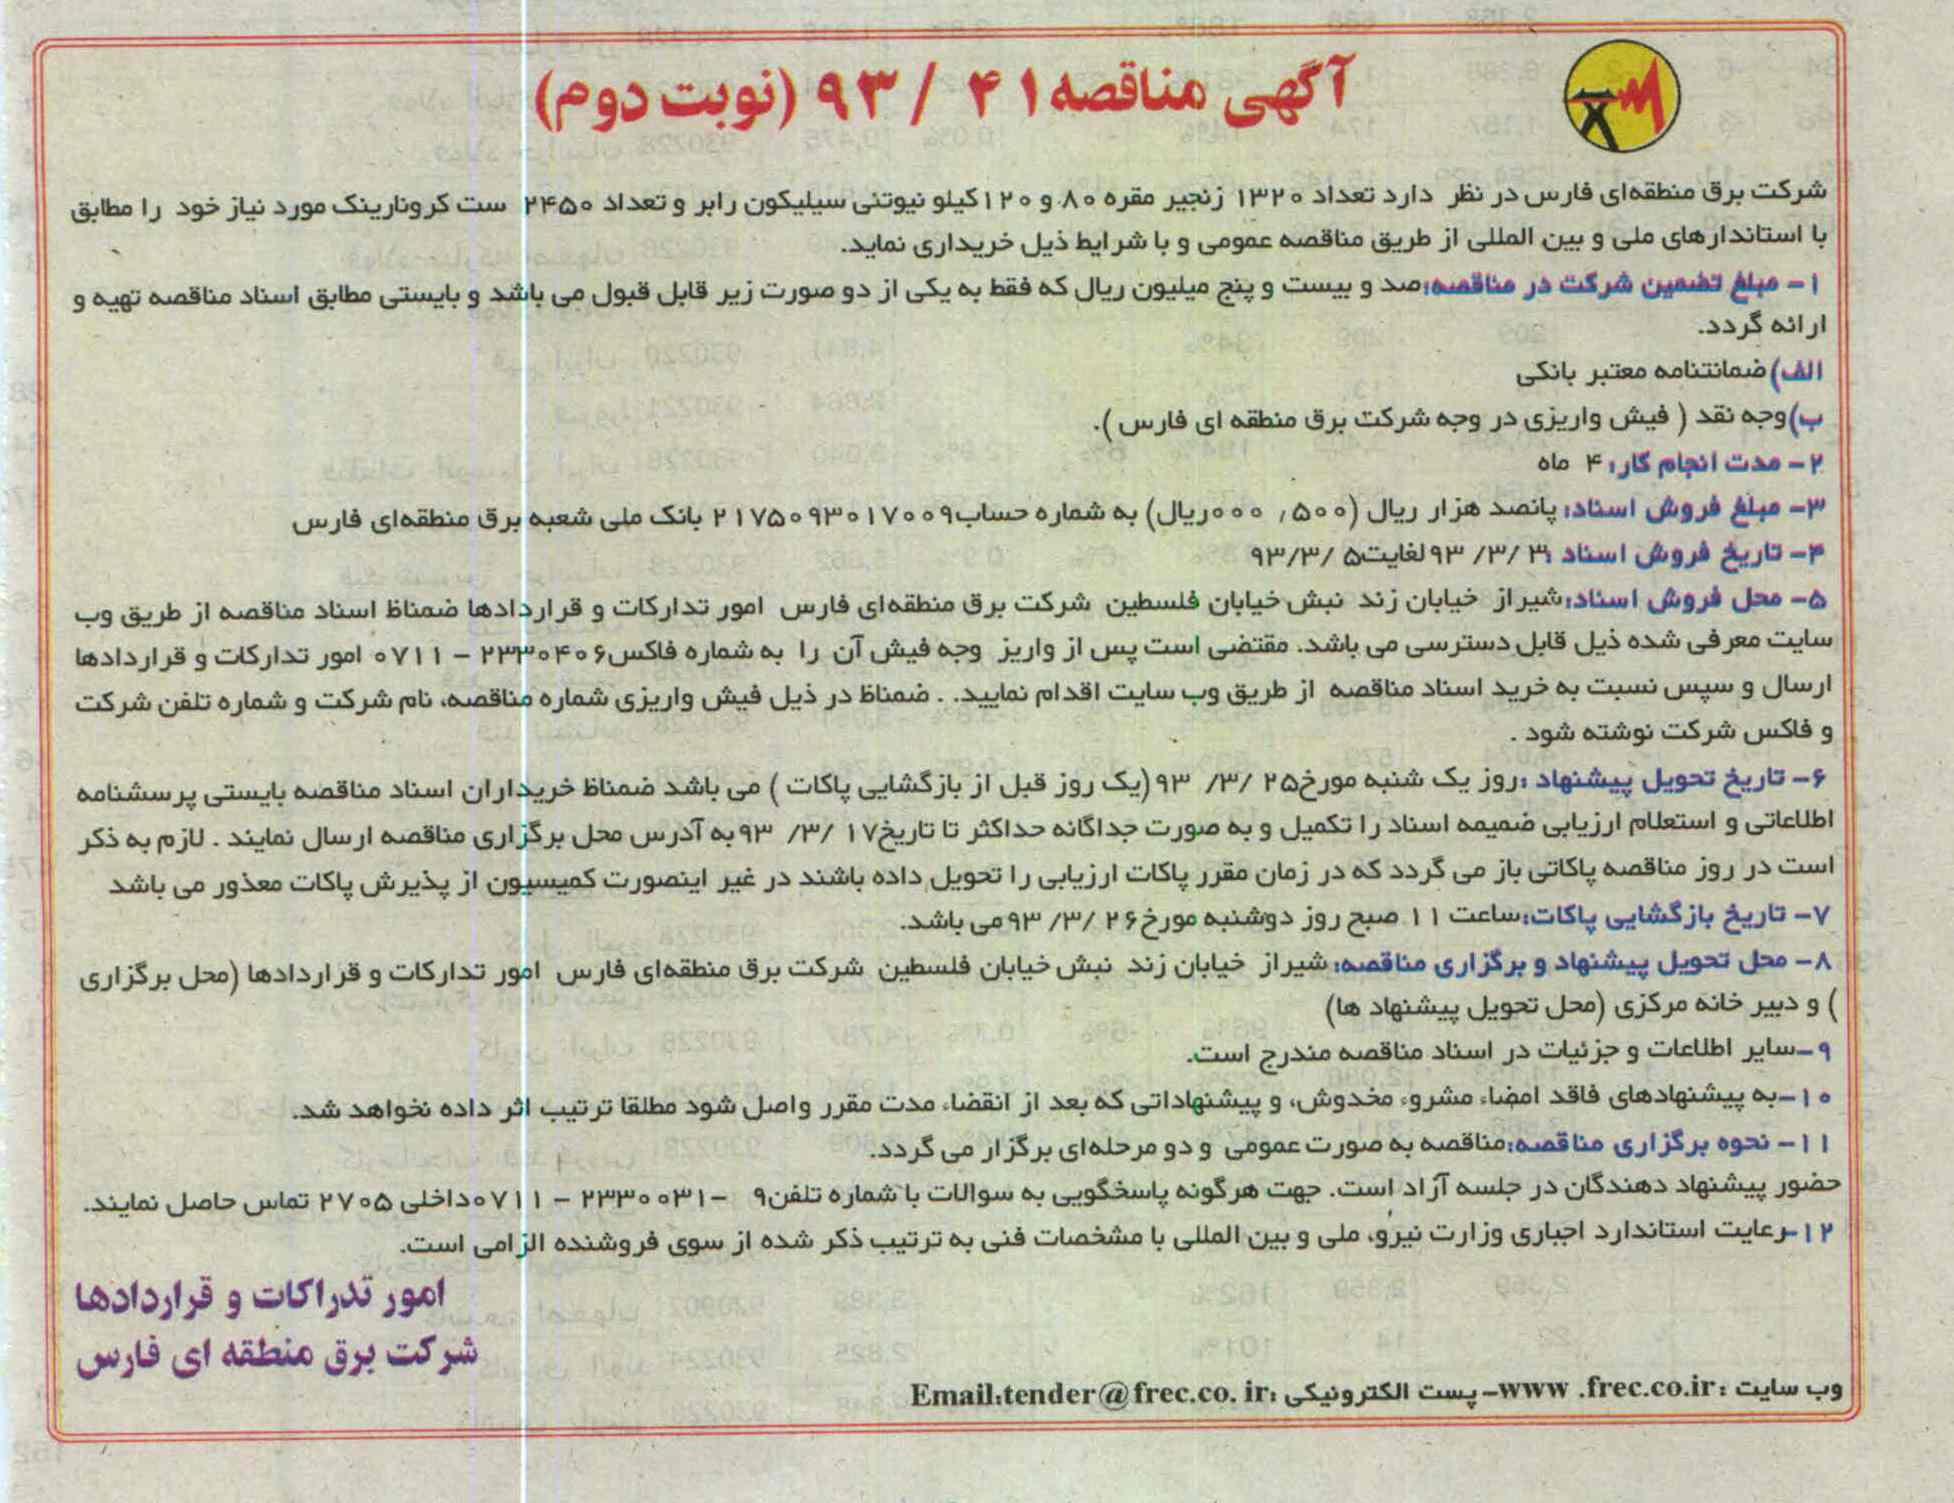 آگهی مناقصه ۴۱ / ۹۳ (نوبت دوم)
شرکت برق منطقه‌ای فارس در نظر دارد تعداد ۱۳۲۰ زنجیر مقره ۸۰ و ۱۲۰ کیلو نیوتنی سیلیکون رابر و تعداد ۲۴۵۰ ست کرونارینک مورد نیاز خود را مطابق
با استاندارهای ملی و بین المللی از طریق مناقصه عمومی و با شرایط ذیل خریداری نماید.
۱- مبلغ تضمین شرکت در مناقصه: صد و بیست و پنج میلیون ریال که فقط به یکی از دو صورت زیر قابل قبول می باشد و بایستی مطابق اسناد مناقصه تهیه و
ارائه گردد.
الف) ضمانتنامه معتبر بانکی
ب) وجه نقد ( فیش واریزی در وجه شرکت برق منطقه ای فارس ).
۲- مدت انجام کار: ۴ ماه
۳- مبلغ فروش اسناد: پانصد هزار ریال (۵۰۰, ۰۰۰ریال) به شماره حساب۲۱۷۵۰۹۳۰۱۷۰۰۹ بانک ملی شعبه برق منطقه‌ای فارس
۴- تاریخ فروش اسناد : ۳ /۳/ ۹۳ لغایت۵ /۹۳/۳
۵- محل فروش اسناد: شیراز خیابان زند نبش خیابان فلسطین شرکت برق منطقه‌ای فارس امور تدارکات و قراردادها ضمناظ اسناد مناقصه از طریق وب
سایت معرفی شده ذیل قابل دسترسی می باشد. مقتضی است پس از واریز وجه فیش آن را به شماره فاکس۲۳۳۰۴۰۶ - ۰۷۱۱ امور تدارکات و قراردادها
ارسال و سپس نسبت به خرید اسناد مناقصه از طریق وب سایت اقدام نمایید. . ضمناظ در ذیل فیش واریزی شماره مناقصه، نام شرکت و شماره تلفن شرکت
و فاکس شرکت نوشته شود .
۶- تاریخ تحویل پیشنهاد : روز یک شنبه مورخ۲۵ /۳/ ۹۳ (یک روز قبل از بازگشایی پاکات ) می باشد ضمناظ خریداران اسناد مناقصه بایستی پرسشنامه
اطلاعاتی و استعلام ارزیابی ضمیمه اسناد را تکمیل و به صورت جداگانه حداکثر تا تاریخ۱۷ /۳/ ۹۳ به آدرس محل برگزاری مناقصه ارسال نمایند . لازم به ذکر
است در روز مناقصه پاکاتی باز می گردد که در زمان مقرر پاکات ارزیابی را تحویل داده باشند در غیر اینصورت کمیسیون از پذیرش پاکات معذور می باشد
۷- تاریخ بازگشایی پاکات: ساعت ۱۱ صبح روز دوشنبه مورخ۲۶ /۳/ ۹۳ می باشد.
۸- محل تحویل پیشنهاد و برگزاری مناقصه: شیراز خیابان زند نبش خیابان فلسطین شرکت برق منطقه‌ای فارس امور تدارکات و قراردادها (محل برگزاری
) و دبیر خانه مرکزی (محل تحویل پیشنهاد ها)
۹-سایر اطلاعات و جزئیات در اسناد مناقصه مندرج است.
۱۰-به پیشنهادهای فاقد امضاء مشروء مخدوش، و پیشنهاداتی که بعد از انقضاء مدت مقرر واصل شود مطلقا ترتیب اثر داده نخواهد شد.
۱۱- نحوه برگزاری مناقصه: مناقصه به صورت عمومی و دو مرحله‌ای برگزار می گردد.
حضور پیشنهاد دهندگان در جلسه آزاد است. جهت هرگونه پاسخگویی به سوالات با شماره تلفن۹ -۲۳۳۰۰۳۱ - ۰۷۱۱داخلی ۲۷۰۵ تماس حاصل نمایند.
۱۲-رعایت استاندارد اجباری وزارت نیرو، ملی و بین المللی با مشخصات فنی به ترتیب ذکر شده از سوی فروشنده الزامی است.
امور تدراکات و قراردادها
شرکت برق منطقه ای فارس
وب سایت :www .frec.co.ir-پست الکترونیکی :Email:tender@frec.co. ir